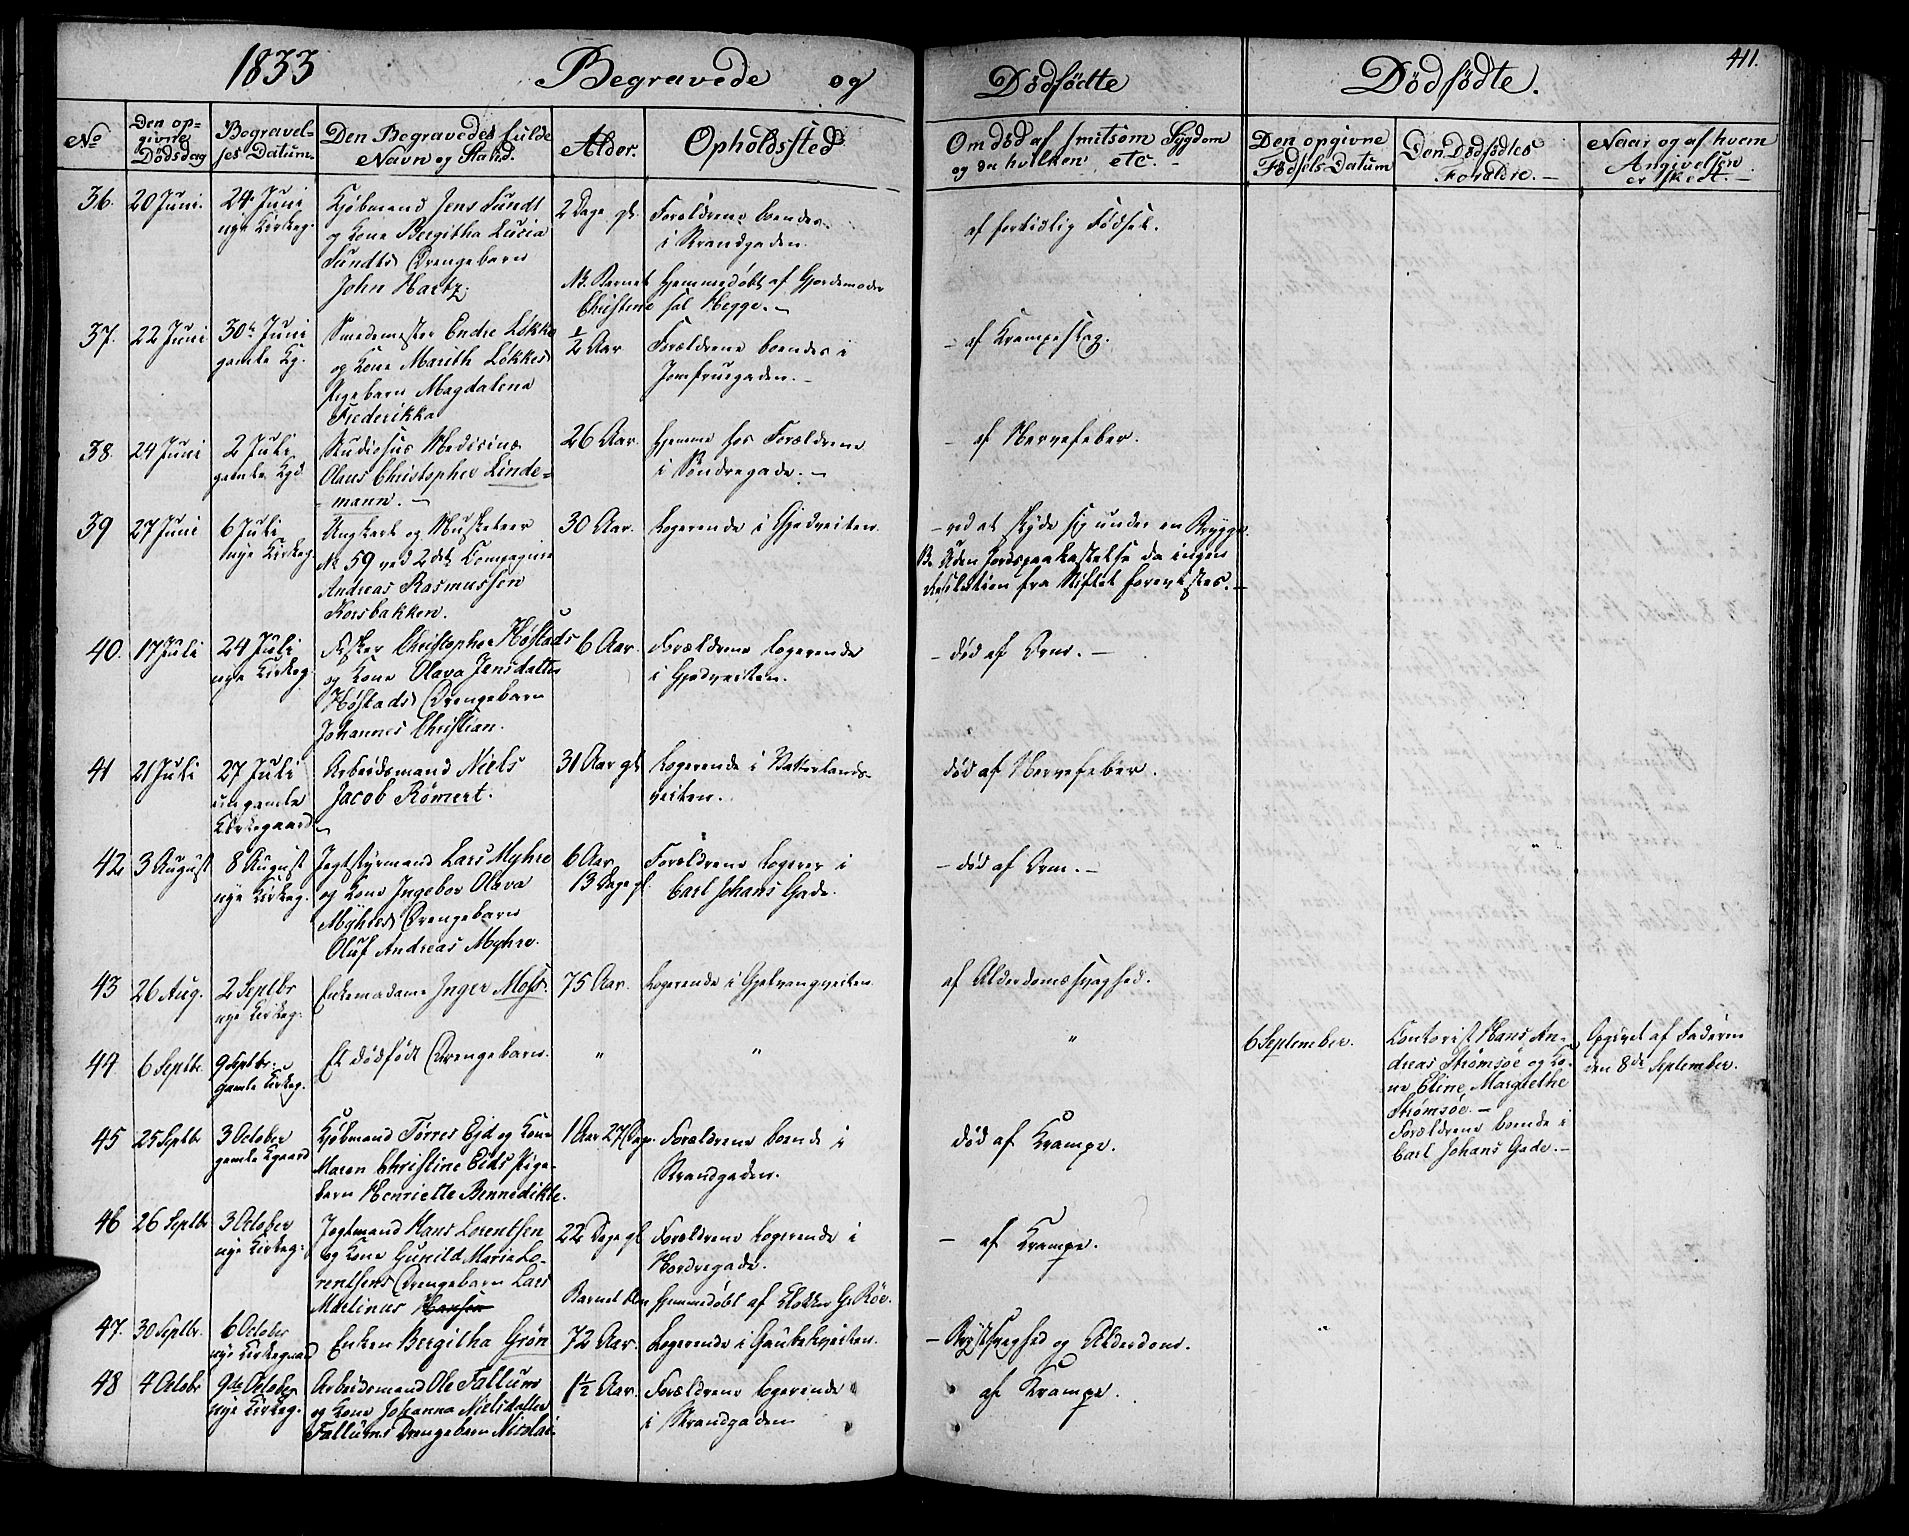 1833 Begravede og Dødfødte Dødfødte. 411.
No
Den op-
givne
Dødsdag
Begravel-
ses Datum.
Den Begravedes fulde
Navn og Stand.
Alder.
Opholdssted
Om død af smitsom Sygdom
og da hvilken etc. -
Den opgivne
Fødsels Datum
Den Dødfødtes
Forældre. -
Naar og af hvem
Angivelsen
er skedt. -
36. 20 Juni.
24 Juni
nye Kirkeg.
Kjøbmand Jens Lundt
og Kone Bergitha Lucia
Lundts Drengebarn
John Hartz.
2 Dage gl.
Forældrene boende
i Strandgaden.
Nb. Barnet hjemmedøbt af Gjordemoder
Christene sal Hegge. -
af fortidlig Fødsel.
37. 22 Juni
30te Juni
gamle Kg.
Smedemester Endre Løkke
og Kone Marith Løkkes
Pigebarn Magdalena
Frederikka
½ Aar
Forældrene boende i
Jomfruegaden. -
- af Krampeslag.
38. 24 Juni
2 Juli
gamle Kgd
Studiosus Medicinæ
Olaus Christopher Linde-
-mann. -
26 Aar.
hjemme hos Forældrene
i Søndregade. -
- af Nervefeber.
39 27 Juni
6 Juli
nye Kirkeg.
Ungkarl og Musketeer
No 59 ved 2det Compagnie
Andreas Rasmussen
Korsbakken.
30 Aar.
Logerende i Gjedveiten.
- ved at skyde sig under en Brygge.
Nb. Uden Jordspaakastelse da ingen
Resolution fra Stiftet forevistes. -
40. 17 Juli
24 Juli
nye Kirkeg.
Fisker Christopher Høstads
og Kone Olava Jensdatter
Høstads Drengebarn
Johannes Christian.
6 Aar.
Forældrene logerende
i Gjedveiten.
- død af Orm. -
41 21 Juli
27 Juli
gamle
Kirkegaard
Arbeidsmand Niels
Jacob Römert.
31 Aar gl
Logerende i Vatterlands-
veiten.
død af Nervefeber.
42 3 August
8 August
nye Kirkeg.
Jagtstyrmand Lars Myhre
og Kone Ingebor Olava
Myhres Drengebarn
Oluf Andreas Myhre.
6 Aar
13 Dage gl.
Forældrene logerer i
Carl Johans Gade.
- død af Orm. -
43 26 Aug.
2 Septbr
nye Kirkeg.
Enkemadame Inger Moss.
75 Aar.
Logerende i Gjelvangveiten
af Alderdomssvaghed.
44 6 Septbr.
9 Septbr.
gamle Kirkeg.
Et dødfødt Drengebarn.
" " "
6 September.
Contorist Hans An-
dreas Strømsøe og Ko-
ne Eline Margrethe
Strømsøe. -
Forældrene boende i
Carl Johans Gade. -
Opgivet af Faderen
den 8de September.
45 25 Septbr
3 October
gamle Kgaard
Kjøbmand Tørres Ejd og Kone
Maren Christine Eids Pige-
barn Henriette Bennedikte.
1 Aar 27 Dage.
Forældrene boende i
Strandgaden.
død af Krampe.
46 26 Septbr
3 October
nye Kirkeg.
Jagtmand Hans Lorentsen
og Kone Gunild Maria Lo-
rentsens Drengebarn Lars
Martinus Hansen
22 Dage gl
Forældrene logerende i
Nordregade.
Barnet hjemmedøbt af Klokker G. Röe.
- af Krampe.
47. 30 Septbr.
6 October
nye Kirkegaard
Enken Bergitha Grøn
72 Aar.
Logerende i Gaubekveiten.
- Brystsvaghed og Alderdom.
"
48 4 Octobr
9de October
nye Kirkeg.
Arbeidsmand Ole Fallum
og Kone Johanna Nielsdatter
Fallums Drengebarn Nicolai
1½ Aar.
Forældrene logerende
i Strandgaden
af Krampe.